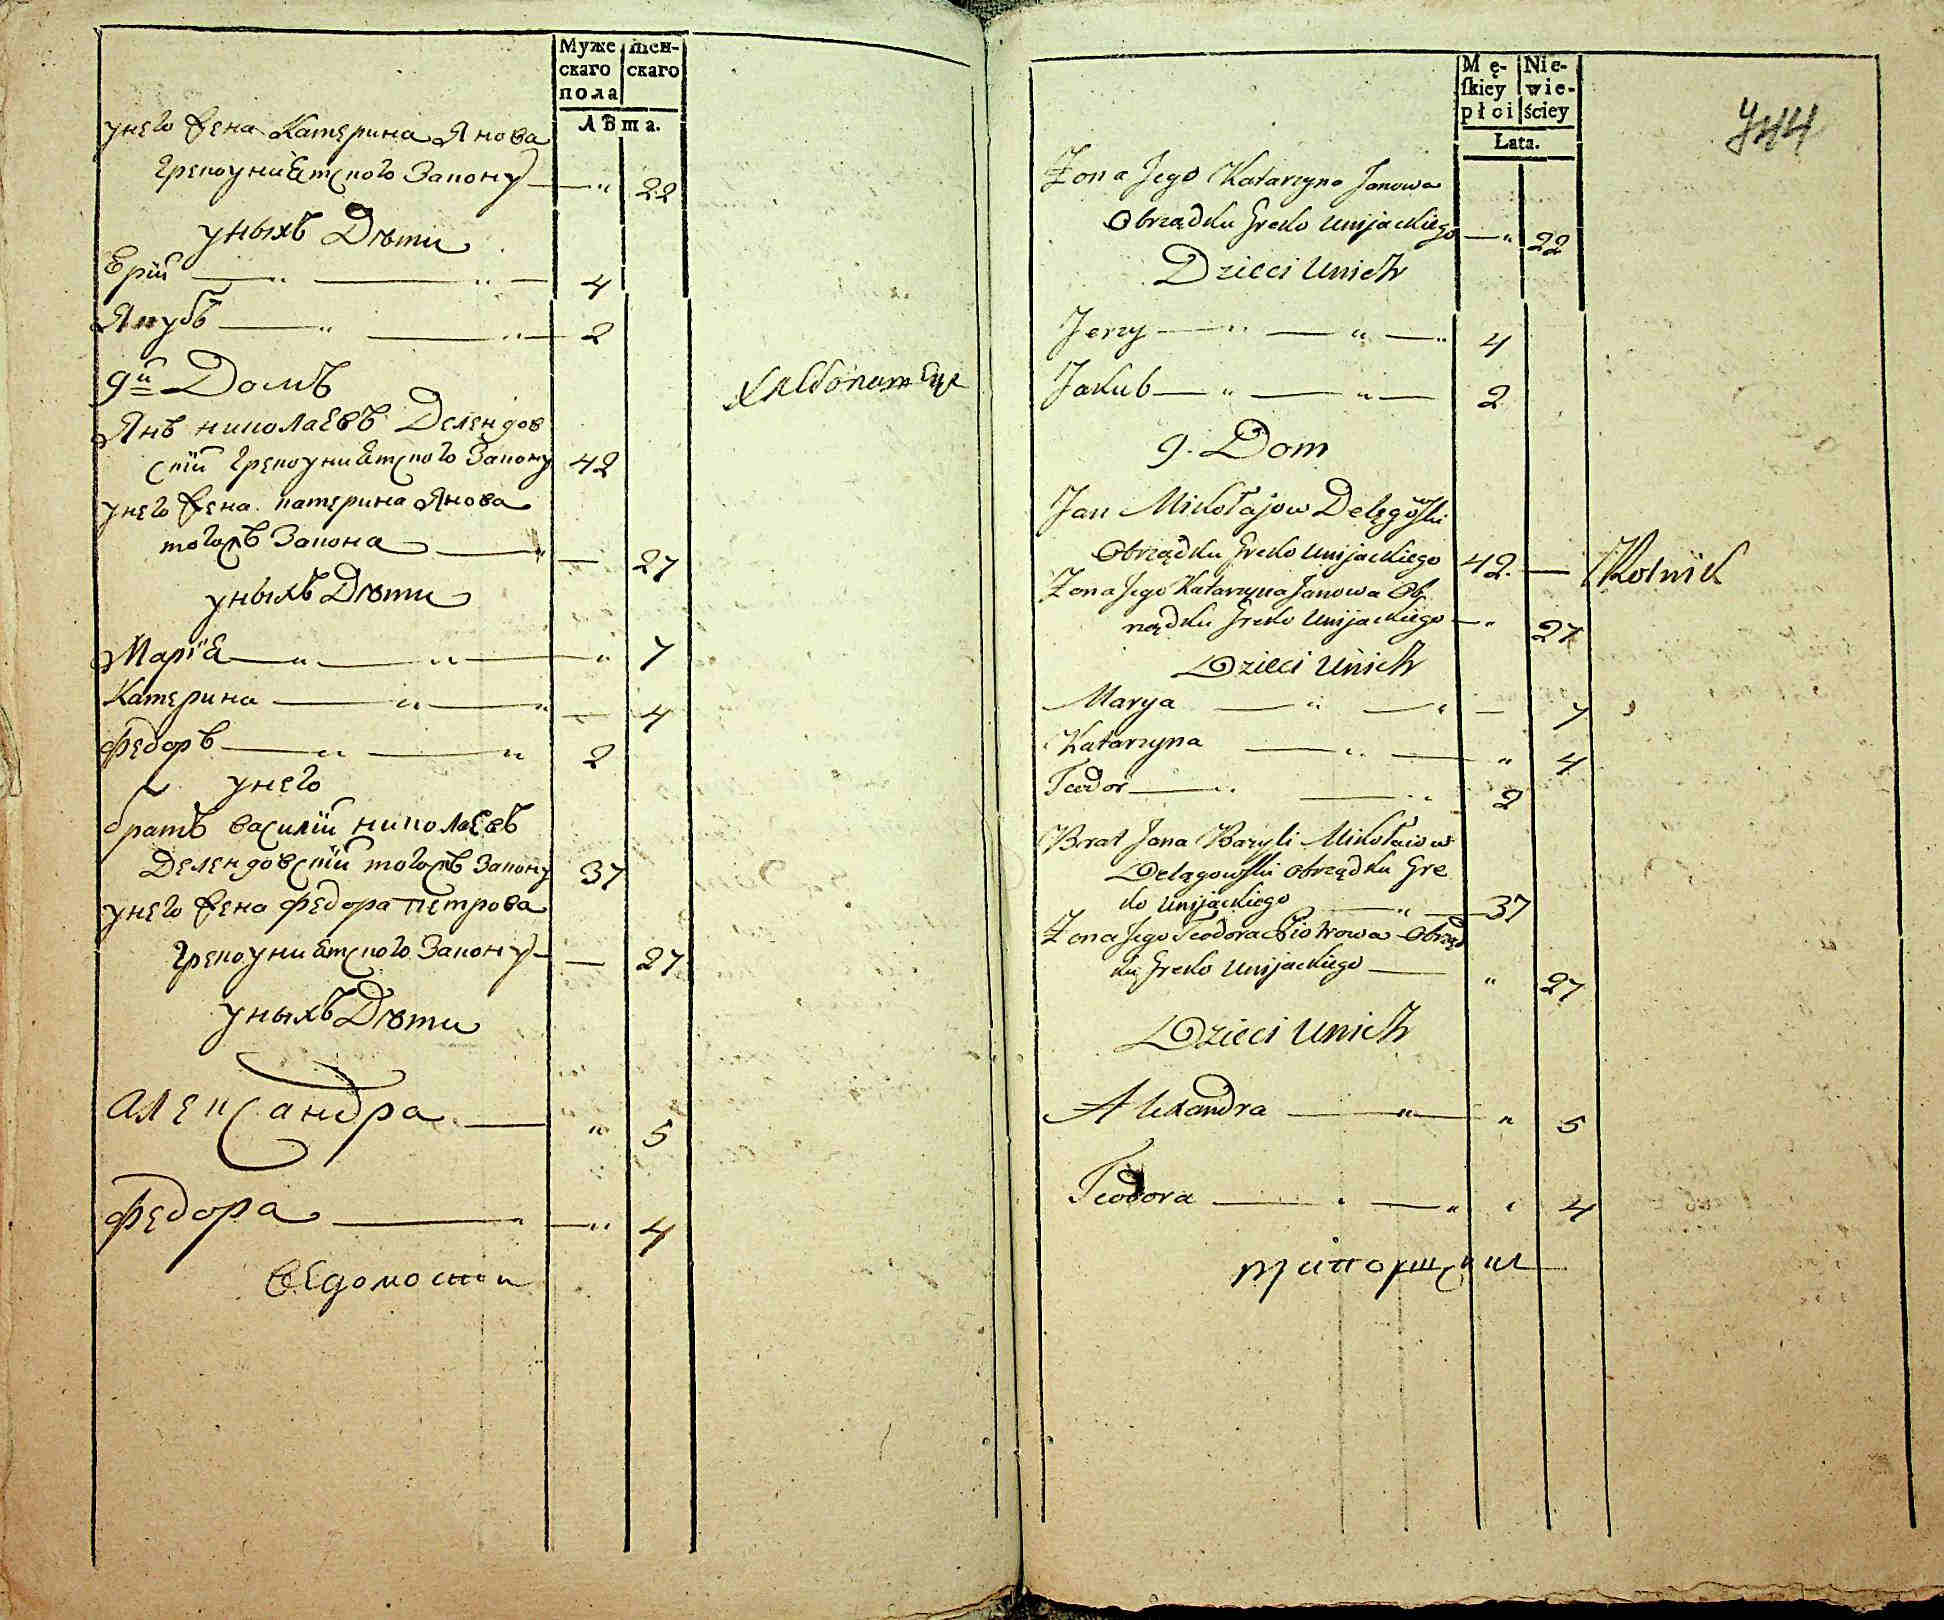 Муже
скаго
пола
жен-
скаго
Лѣта.
унего Жена Катерина Янова
Грекоуниѣтского Закону 22
уныхъ Дѣти
Ерій 4
Якубъ 2
9й Домъ
Янъ николаевъ Делендов
скій Грекоуниѣтского Закону 42
унего Жена катерина Янова
тогожъ Закона 27
уныхъ Дѣти
Маріѣ 7
Катерина 4
Федоръ 2
унего
братъ василій николаевъ
Делендовскій тогожъ Закону 37
унего Жена Федора Петрова
Грекоуниѣтского Закону 27
уныхъ Дѣти
Александра 5
Федора 4
ведомости
Mę-
ſkiey
płci
Nie-
wie-
ściey
Łata.
744
Zona Jego Katarzyna Janowa
Obrządku Greko Unijackiego 22
Dzieci Unich
Jerzy 4
Jakub 2
9. Dom
Jan Mikołajow
Obrządku Greko Unijackiego 42. Rolnik
Zona Jego Katarzyna Janowa Ob
rządku Greko Unijackiego 27
Dzieci Unich
Marya 7
Katarzyna 4
Teodor 2
Brat Jana Bazyli Mikołaiow
Delągowski obrządku Gre
ko Unijackiego 37
Zona Jego Teodora Piotrowa Obrząd
ku Greko Unijackiego 27
Dzieci Unich
Alexandra 5
Teodora 4